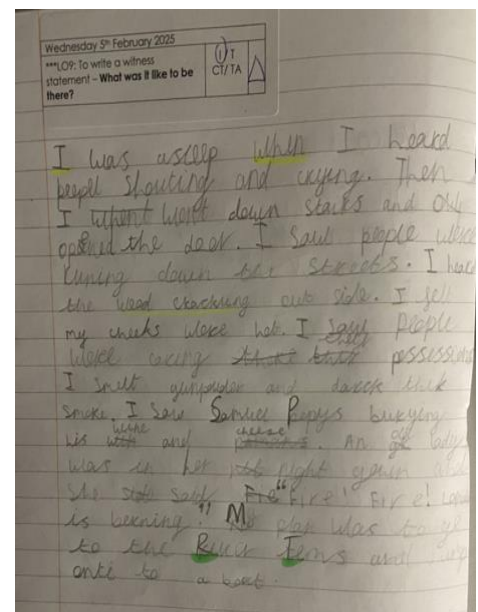 Wednesday 5th February 2025
***LO9: To write a witness
statement – What was it like to be
there?
I T
CT/ TA
I was asleep when I heard
peepel shouting and crying. Then
I whent down stairs and
opened the door. I saw people were
runing down the streets. I
the wood crackling out side. I
my cheeks were hot. I people
were possessions
I smelt gunpowder and darck thik
smoke. I saw Samuel Pepys burying
his wine and cheese. An lady
was in her night gown
she said "Fire! Fire!
is berning." M plan was to
to the River Tems and
onto to a boat.